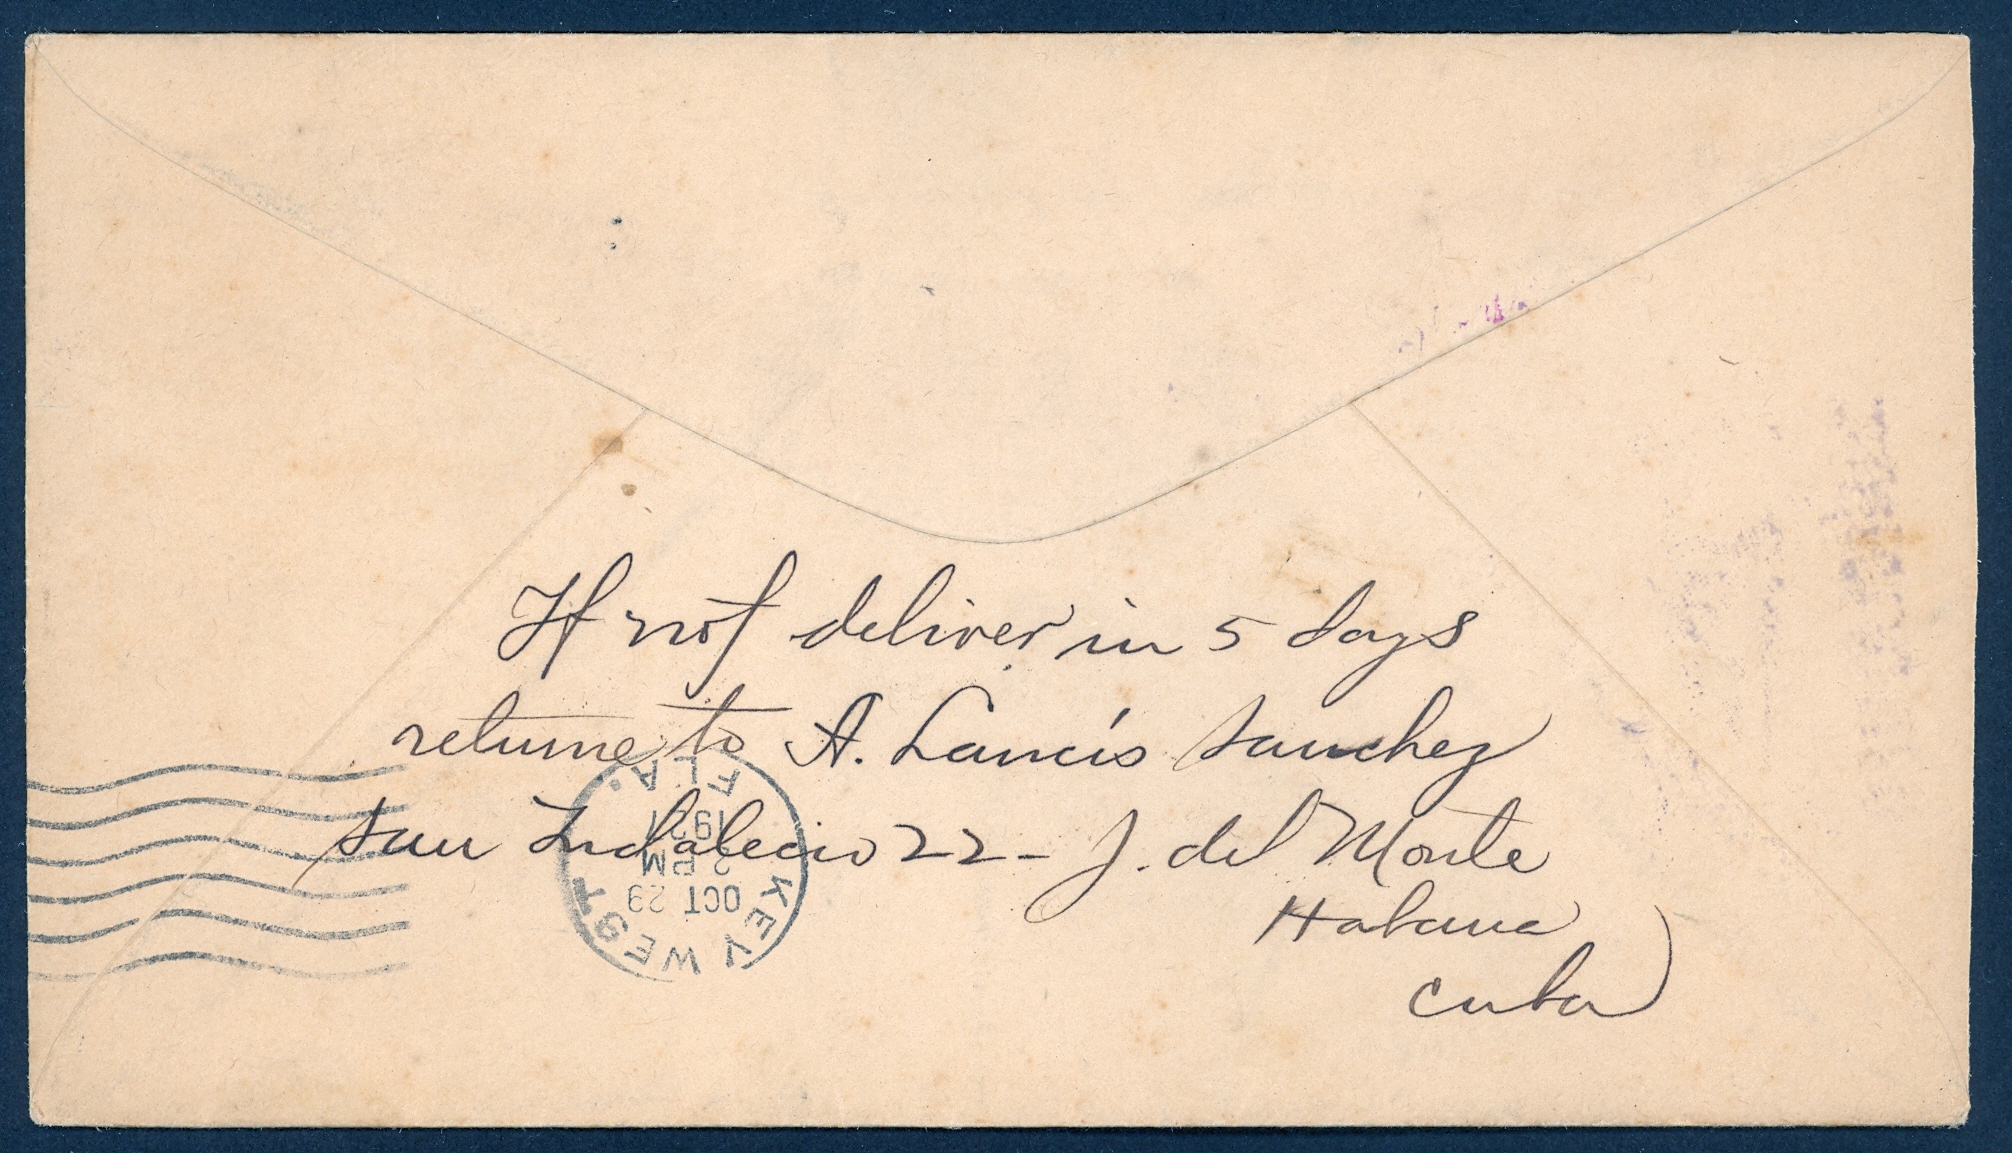 If not deliver in 5 days
returne to A. Lancís Sanchez
San Indalecio 22 - J. del Monte
Habana
Cuba
KEY WEST FLA.
OCT 29
2 PM
1921